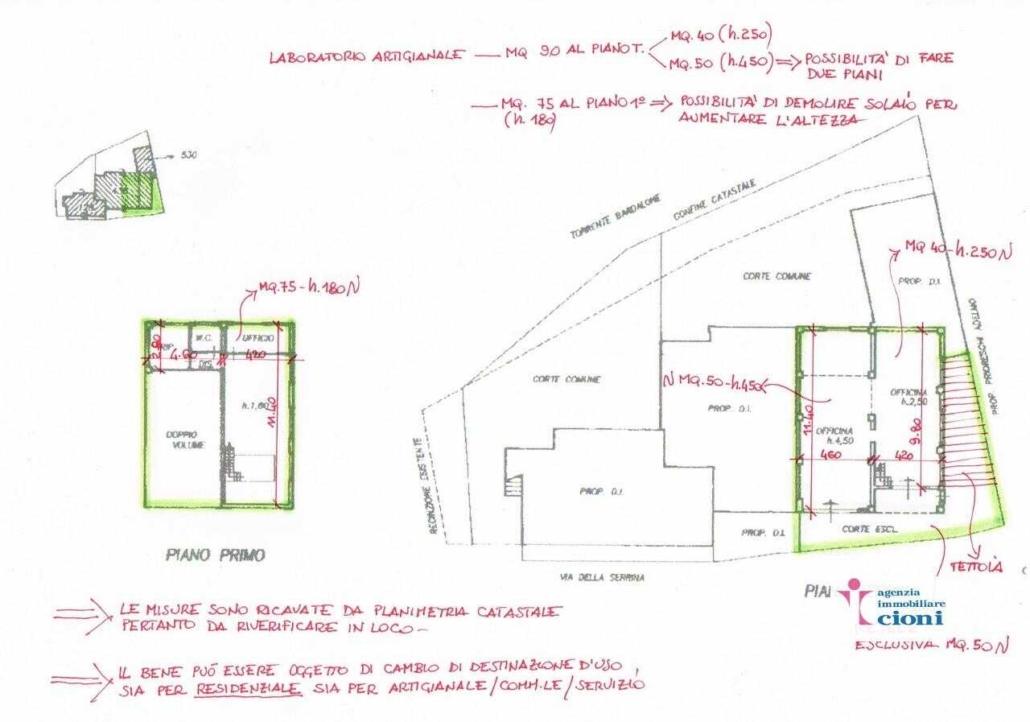 LABORATORIO ARTIGIANALE — MQ 90 AL PIANO T. MQ. 40 (h.250)
MQ. 50 (h.450) => POSSIBILITA' DI FARE
DUE PIANI
— MQ. 75 AL PIANO 1° => POSSIBILITA' DI DEMOLIRE SOLAIO PER
(h. 180) AUMENTARE L'ALTEZZA
530
TORRENTE BARDALONE
CONFINE CATASTALE
MQ 40-h.250 N
CORTE COMUNE
PROP. D.I.
MQ.75-h.180 N
W.C.
UFFICIO
RIP.
2.80
4.60
420
DIS.
h.1,80
11.40
DOPPIO
VOLUME
PIANO PRIMO
PROP. PRIORESCHI ADELMO
CORTE COMUNE
N MQ.50-h.450
PROP. D.I.
OFFICINA
h.2,50
11.40
OFFICINA
h.4,50
9.80
460
420
RECINZIONE ESISTENTE
PROP. D.I.
PROP. D.I.
CORTE ESCL.
VIA DELLA SERRINA
TETTOIA
PIA
agenzia
immobiliare
cioni
ESCLUSIVA MQ.50 N
=> LE MISURE SONO RICAVATE DA PLANIMETRIA CATASTALE
PERTANTO DA RIVERIFICARE IN LOCO -
=> IL BENE PUÓ ESSERE OGGETTO DI CAMBIO DI DESTINAZIONE D'USO,
SIA PER RESIDENZIALE SIA PER ARTIGIANALE/COMM.LE/SERVIZIO